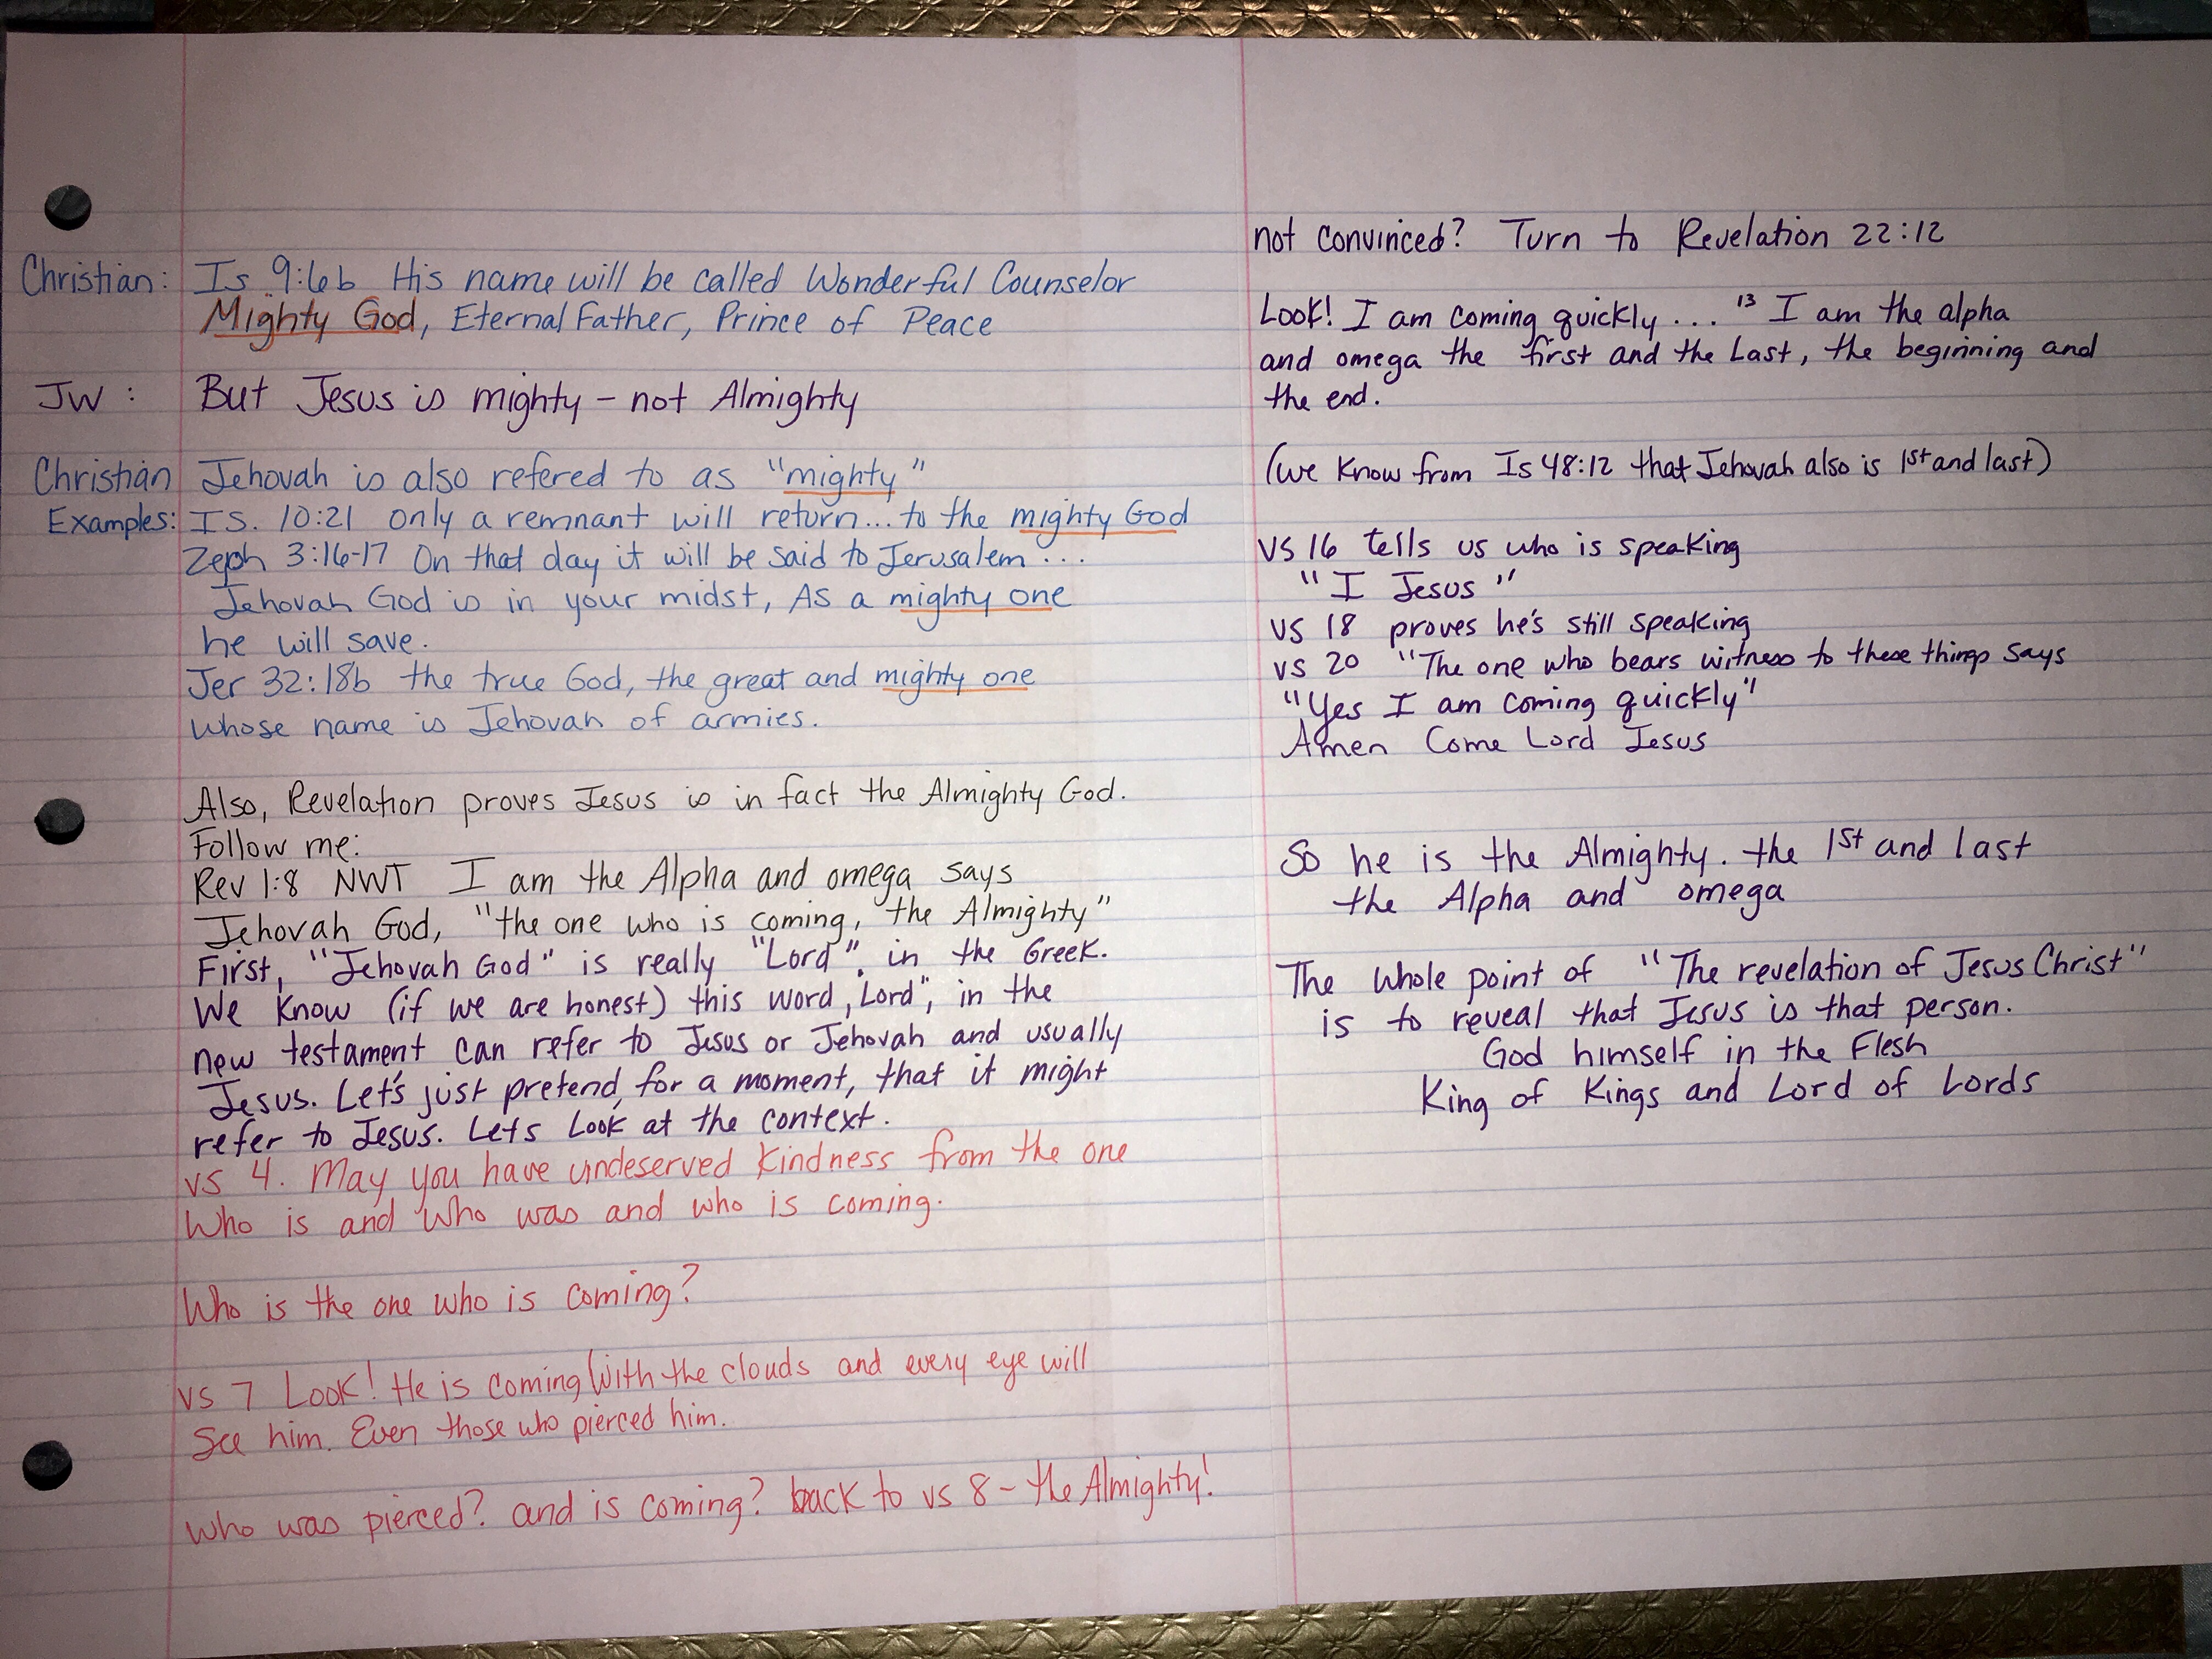 Christian: Is 9:6b His name will be called Wonderful Counselor
Mighty God, Eternal Father, Prince of Peace
JW: But Jesus is mighty - not Almighty
Christian Jehovah is also refered to as "mighty"
Examples: IS. 10:21 only a remnant will return... to the mighty God
Zeph 3:16-17 On that day it will be said to Jerusalem....
Jehovah God is in your midst, As a mighty one
he will save.
Jer 32:18b the true God, the great and mighty one
whose name is Jehovah of armies.
Also, Revelation proves Jesus is in fact the Almighty God.
Follow me:
Rev 1:8 NWT I am the Alpha and omega says
Jehovah God, "the one who is coming, the Almighty"
First, "Jehovah God" is really "Lord", in the Greek.
We know (if we are honest) this word, "Lord", in the
new testament can refer to Jesus or Jehovah and usually
Jesus. Let's just pretend, for a moment, that it might
refer to Jesus. Lets Look at the context.
vs 4. May you have undeserved kindness from the one
Who is and who was and who is coming.
Who is the one who is coming?
vs 7 Look! He is coming With the clouds and every eye will
See him. Even those who pierced him.
who was pierced? and is coming? back to vs 8 - the Almighty!
not convinced? Turn to Revelation 22:12
Look! I am coming quickly... 13 I am the alpha
and omega the first and the Last, the beginning and
the end.
(we know from Is 48:12 that Jehovah also is 1st and last)
VS 16 tells us who is speaking
"I Jesus"
vs 18 proves he's still speaking
vs 20 "The one who bears witness to these things says
"Yes I am coming quickly"
Amen Come Lord Jesus
So he is the Almighty. the 1st and last
the Alpha and omega
The whole point of "The revelation of Jesus Christ"
is to reveal that Jesus is that person.
God himself in the Flesh
King of Kings and Lord of Lords